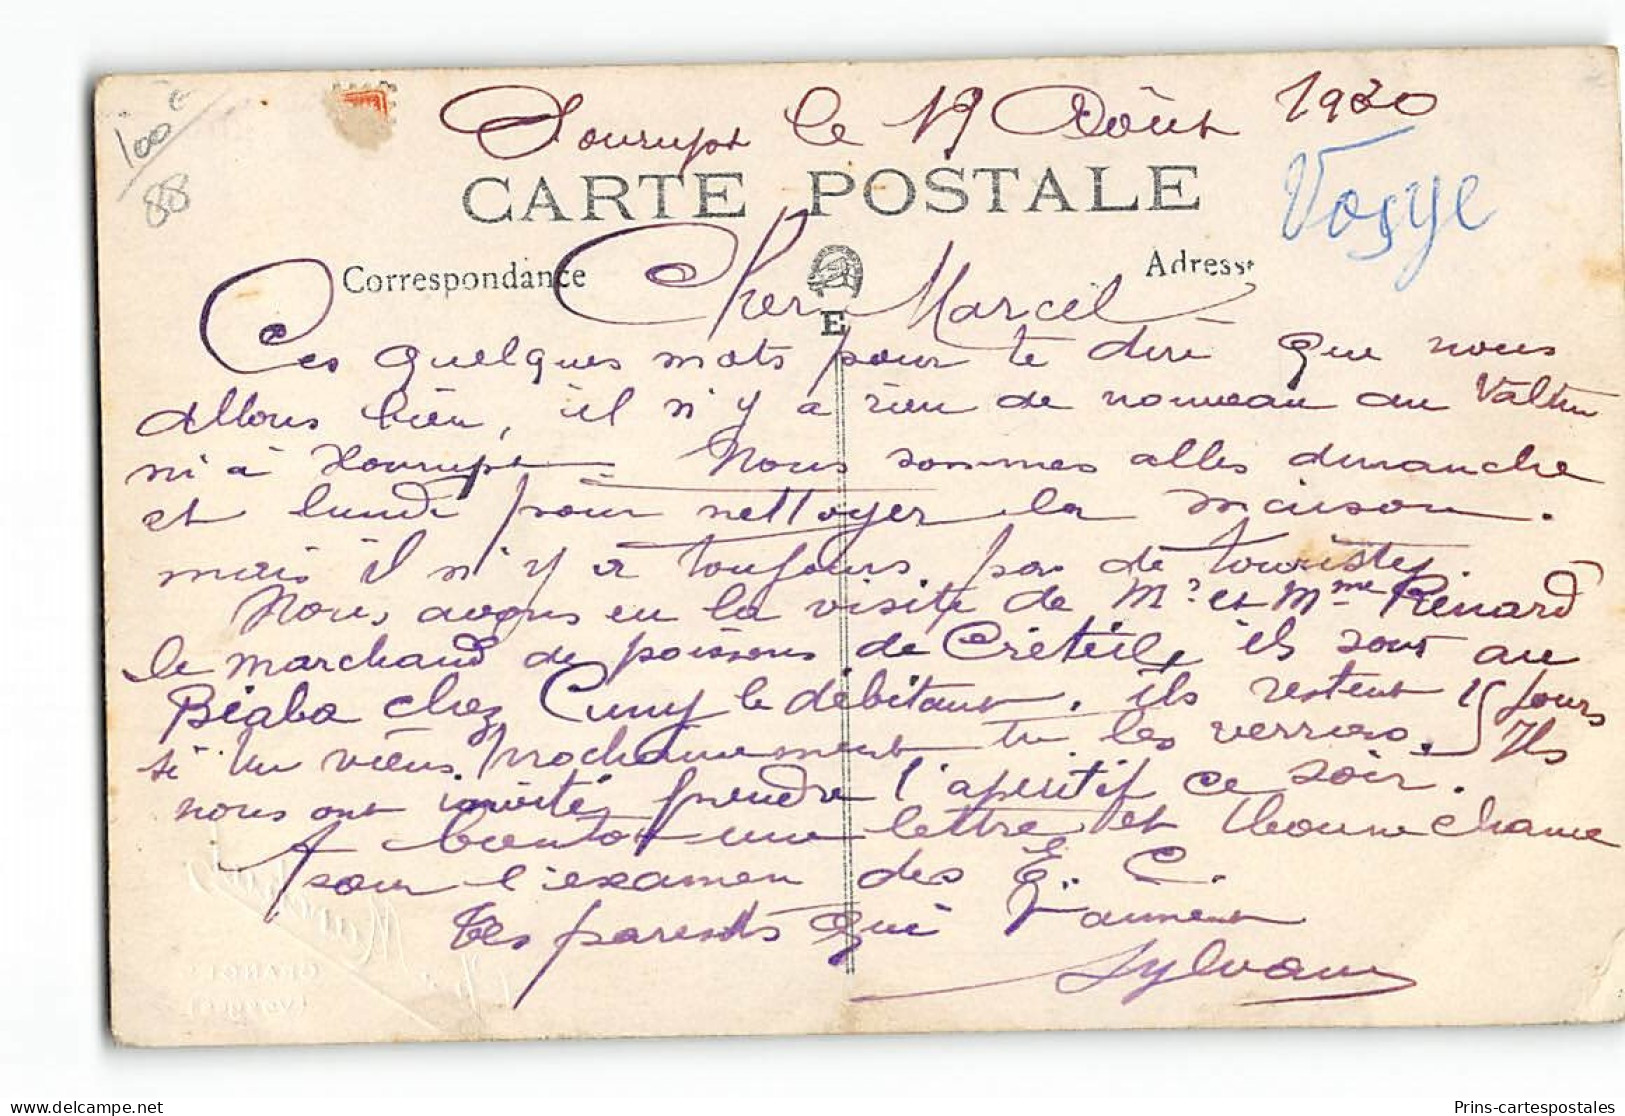 100 €
88
Xourupt le 19 Août 1930
CARTE POSTALE
Vosge
Correspondance
Adresse
Cher Marcel
E
Ces quelques mots pour te dire que nous
allons bien, il n'y a rien de nouveau au Valtin
ni à Xourupt. Nous sommes allés dimanche
et lundi pour nettoyer la maison.
mais il n'y a toujours pas de touristes.
Nous avons eu la visite de Mr et Mme Renard
le marchand de poissons de Créteil, ils sont au
Béaba chez Cuny le débitant. ils restent 15 jours
si tu viens prochainement tu les verras. Ils
nous ont invités prendre l'apéritif ce soir.
A bientôt une lettre et bonne chance
pour l'examen des E. C.
Tes parents qui t'aiment
Sylvain
GERARDMER
(Vosges)
Prins-cartespostales
https://www.delcampe.net